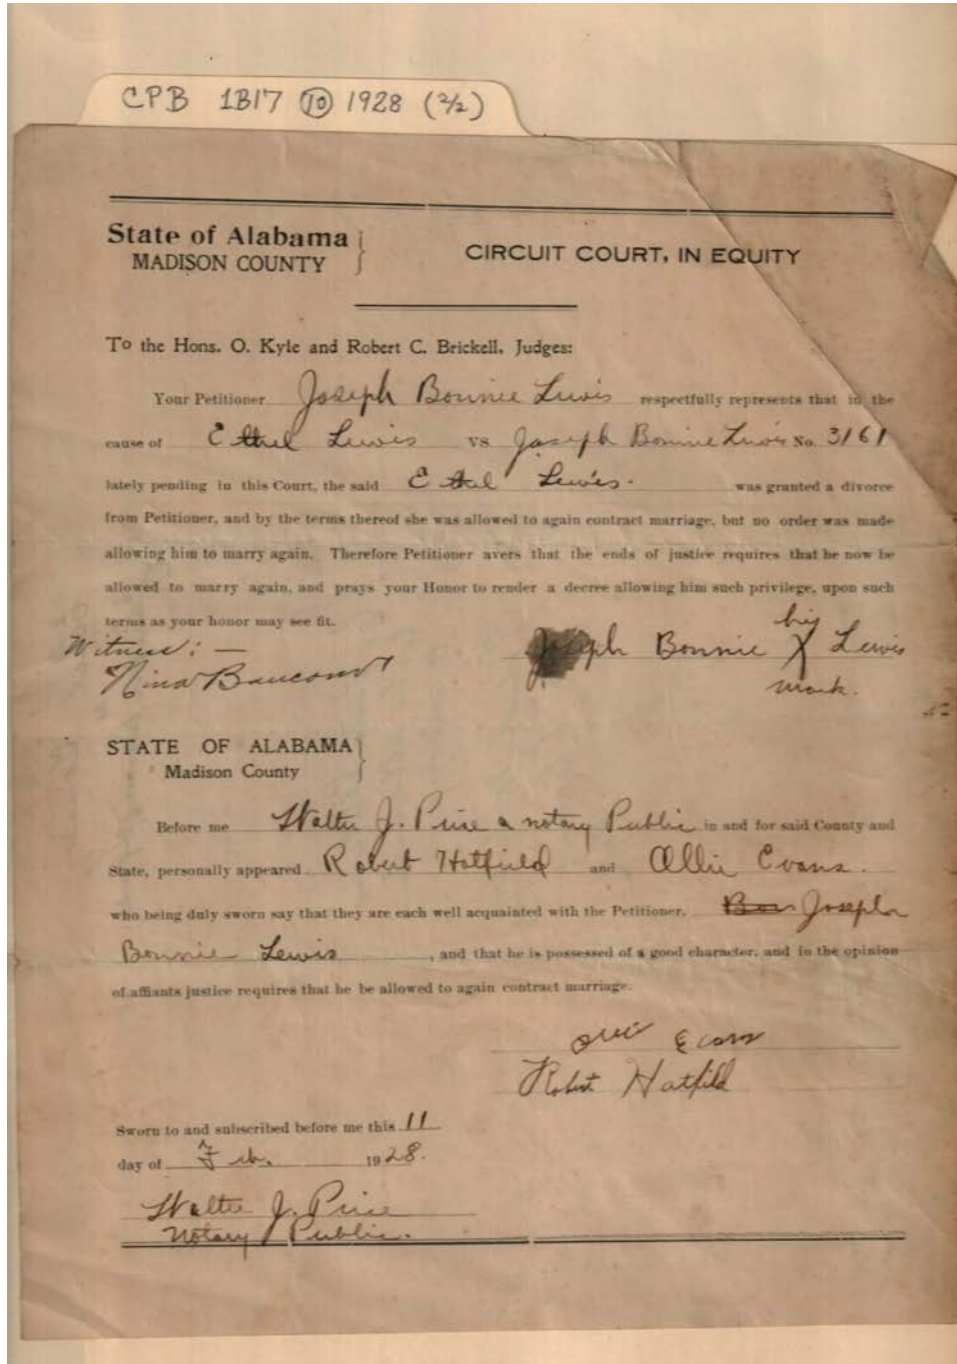 CPB 1B17 (10) 1928 (2/2)
State of Alabama
MADISON COUNTY
CIRCUIT COURT, IN EQUITY
To the Hons. O. Kyle and Robert C. Brickell, Judges:
Your Petitioner Joseph Bonnie Lewis respectfully represents that in the
cause of Ethel Lewis vs Joseph Bonnie Lewis No. 3161
lately pending in this Court, the said Ethel Lewis. was granted a divorce
from Petitioner, and by the terms thereof she was allowed to again contract marriage, but no order was made
allowing him to marry again. Therefore Petitioner avers that the ends of justice requires that he now be
allowed to marry again, and prays your Honor to render a decree allowing him such privilege, upon such
terms as your honor may see fit.
Witness: —
Nina
his
Joseph Bonnie X Lewis
mark.
STATE OF ALABAMA
Madison County
Before me Walter J. Price a notary Public in and for said County and
State, personally appeared Robert Hatfield and Ollie Evans.
who being duly sworn say that they are each well acquainted with the Petitioner, Bon Joseph
Bonnie Lewis, and that he is possessed of a good character, and in the opinion
of affiants justice requires that he be allowed to again contract marriage.
Robert Hatfild
Sworn to and subscribed before me this 11
day of Feb. 1928.
Walter J. Price
Notary Public.